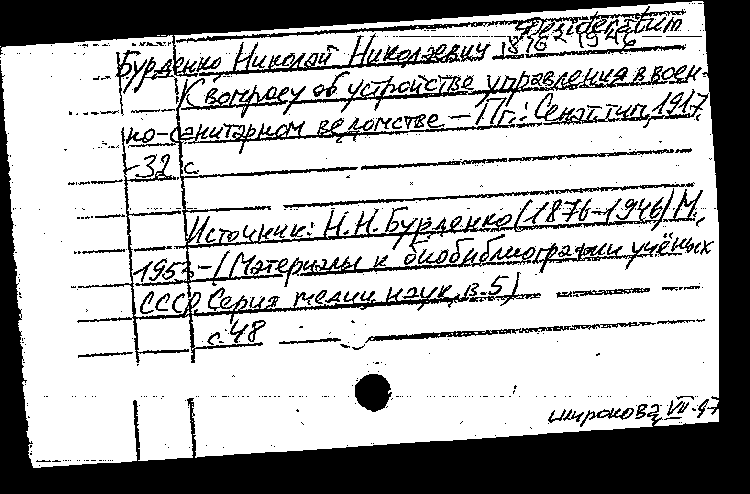 Desideratum
Бурденко, Николай Николаевич 1876-1946
К вопросу об устройстве управления в воен-
но-санитарном ведомстве. - Пг.: Сенат. тип., 1917.
- 32 с.
Источник: Н.Н. Бурденко (1876-1946) М.,
1953 - (Материалы к биобиблиографии учёных
СССР. Серия медиц. наук, в. 5)
с. 48
широкова, VII-97